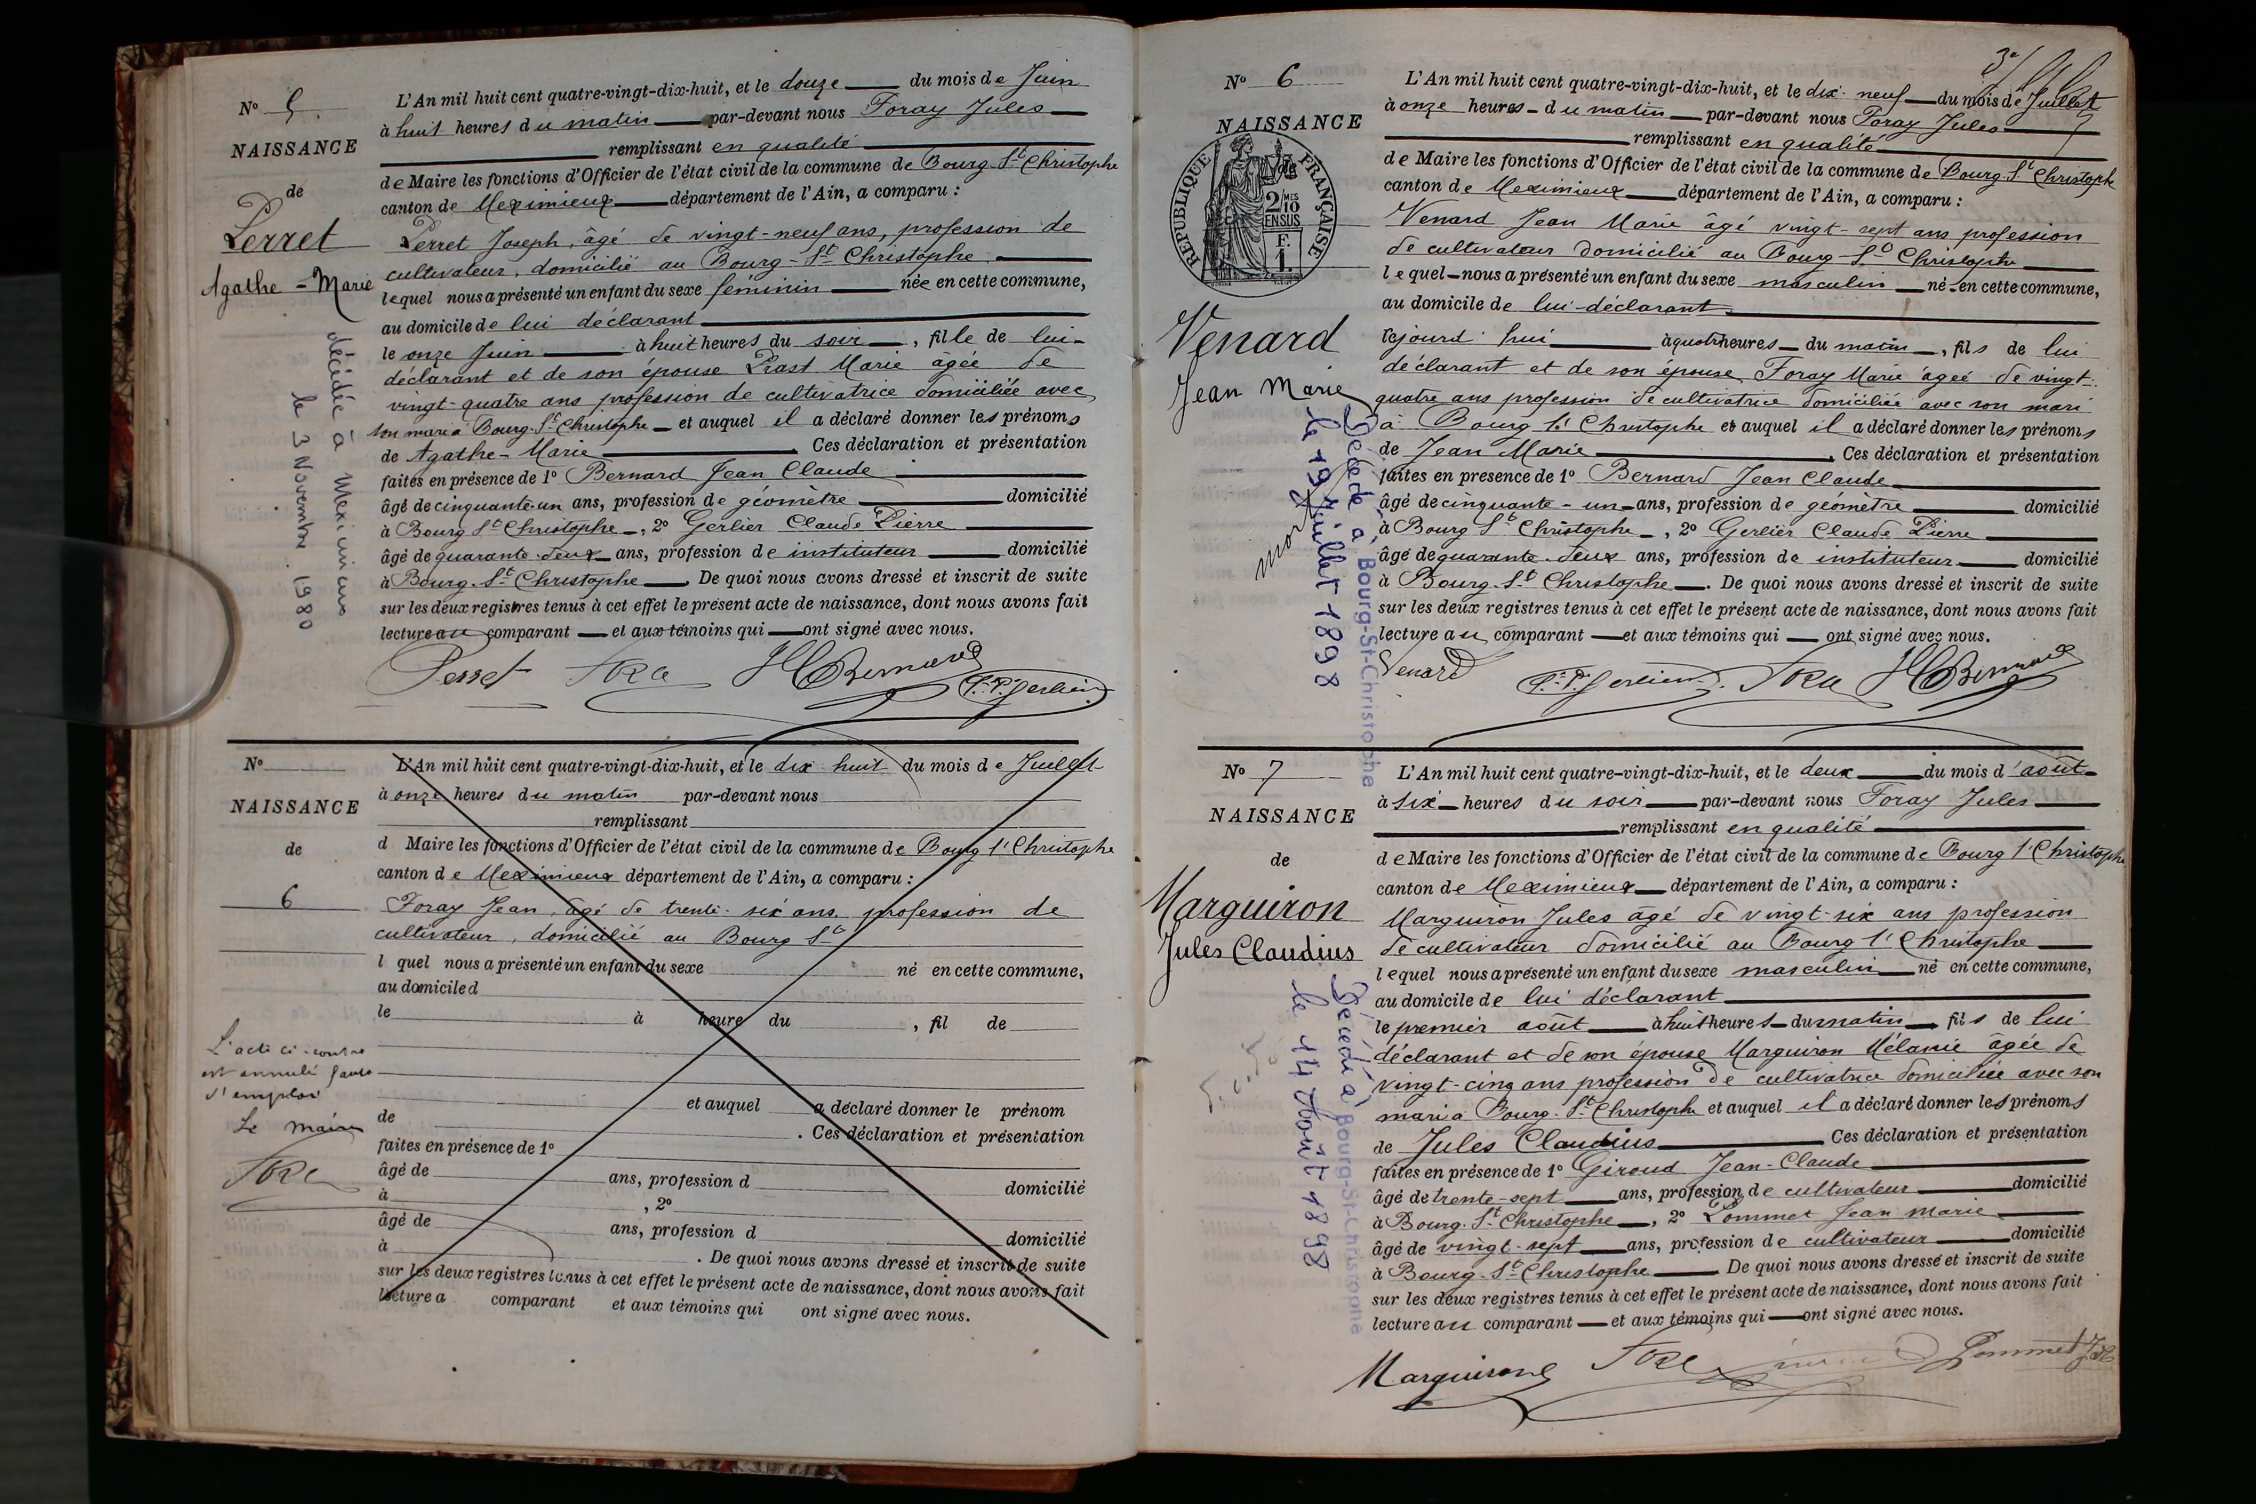 N° 5.
NAISSANCE
de
Perret
Agathe - Marie
décédée à Meximieux
le 3 Novembre 1980
L'An mil huit cent quatre-vingt-dix-huit, et le douze du mois de Juin
à huit heures du matin par-devant nous Foray Jules
remplissant en qualité
de Maire les fonctions d'Officier de l'état civil de la commune de Bourg-St-Christophe
canton de Meximieux département de l'Ain, a comparu :
Perret Joseph, âgé de vingt-neuf ans, profession de
cultivateur, domicilié au Bourg-St-Christophe
lequel nous a présenté un enfant du sexe féminin née en cette commune,
au domicile de lui déclarant
le onze Juin à huit heures du soir, fille de lui-
déclarant et de son épouse Prast Marie âgée de
vingt-quatre ans profession de cultivatrice domiciliée avec
son mari à Bourg-St-Christophe et auquel il a déclaré donner les prénoms
de Agathe-Marie Ces déclaration et présentation
faites en présence de 1° Bernard Jean Claude
âgé de cinquante-un ans, profession de géomètre domicilié
à Bourg St Christophe, 2° Gerlier Claude Pierre
âgé de quarante-deux ans, profession de instituteur domicilié
à Bourg-St-Christophe. De quoi nous avons dressé et inscrit de suite
sur les deux registres tenus à cet effet le présent acte de naissance, dont nous avons fait
lecture au comparant et aux témoins qui ont signé avec nous.
Perret Foray JC Bernard C.P. Gerlier
N°
NAISSANCE
de
6
L'acte ci-contre
est annulé faute
d'emploi
Le maire
Foray
L'An mil huit cent quatre-vingt-dix-huit, et le dix huit du mois de Juillet
à onze heures du matin par-devant nous
remplissant
d Maire les fonctions d'Officier de l'état civil de la commune de Bourg St Christophe
canton de Meximieux département de l'Ain, a comparu :
Foray Jean, âgé de trente-six ans, profession de
cultivateur, domicilié au Bourg St
l quel nous a présenté un enfant du sexe né en cette commune,
au domicile d
le à heure du , fil de
et auquel a déclaré donner le prénom
de . Ces déclaration et présentation
faites en présence de 1°
âgé de ans, profession d domicilié
à , 2°
âgé de ans, profession d domicilié
à . De quoi nous avons dressé et inscrit de suite
sur les deux registres tenus à cet effet le présent acte de naissance, dont nous avons fait
lecture a comparant et aux témoins qui ont signé avec nous.
3e
N° 6
NAISSANCE
RÉPUBLIQUE FRANÇAISE
2/10 MES
EN SUS
F. 1.
Venard
Jean Marie
Décédé à Bourg-St-Christophe
le 19 Juillet 1898
L'An mil huit cent quatre-vingt-dix-huit, et le dix-neuf du mois de Juillet
à onze heures du matin par-devant nous Foray Jules
remplissant en qualité
de Maire les fonctions d'Officier de l'état civil de la commune de Bourg-St-Christophe
canton de Meximieux département de l'Ain, a comparu :
Venard Jean Marie âgé vingt-sept ans profession
de cultivateur domicilié au Bourg-St Christophe
lequel nous a présenté un enfant du sexe masculin né en cette commune,
au domicile de lui-déclarant
cejourd'hui à quatre heures du matin, fils de lui
déclarant et de son épouse Foray Marie âgée de vingt-
quatre ans profession de cultivatrice domiciliée avec son mari
à Bourg St Christophe et auquel il a déclaré donner les prénoms
de Jean Marie. Ces déclaration et présentation
faites en présence de 1° Bernard Jean Claude
âgé de cinquante-un ans, profession de géomètre domicilié
à Bourg St Christophe, 2° Gerlier Claude Pierre
âgé de quarante-deux ans, profession de instituteur domicilié
à Bourg-St Christophe. De quoi nous avons dressé et inscrit de suite
sur les deux registres tenus à cet effet le présent acte de naissance, dont nous avons fait
lecture au comparant et aux témoins qui ont signé avec nous.
Venard C.P. Gerlier Foray JC Bernard
N° 7
NAISSANCE
de
Marguiron
Jules Claudius
Décédé à Bourg-St-Christophe
le 14 Août 1898
L'An mil huit cent quatre-vingt-dix-huit, et le deux du mois d'août
à six heures du soir par-devant nous Foray Jules
remplissant en qualité
de Maire les fonctions d'Officier de l'état civil de la commune de Bourg St Christophe
canton de Meximieux département de l'Ain, a comparu :
Marguiron Jules âgé de vingt-six ans profession
de cultivateur domicilié au Bourg St Christophe
lequel nous a présenté un enfant du sexe masculin né en cette commune,
au domicile de lui déclarant
le premier août à huit heures du matin, fils de lui
déclarant et de son épouse Marguiron Mélanie âgée de
vingt-cinq ans profession de cultivatrice domiciliée avec son
mari à Bourg-St-Christophe et auquel il a déclaré donner les prénoms
de Jules Claudius Ces déclaration et présentation
faites en présence de 1° Giroud Jean-Claude
âgé de trente-sept ans, profession de cultivateur domicilié
à Bourg-St-Christophe, 2° Pommet Jean marie
âgé de vingt-sept ans, profession de cultivateur domicilié
à Bourg-St-Christophe De quoi nous avons dressé et inscrit de suite
sur les deux registres tenus à cet effet le présent acte de naissance, dont nous avons fait
lecture au comparant et aux témoins qui ont signé avec nous.
Marguiron Foray Giroud Pommet